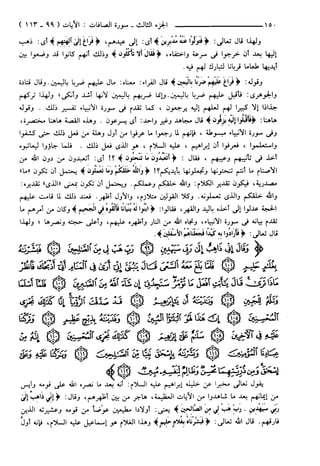 ١٥٠ الجزء الثالث - سورة الصافات : الآيات ( ٩٩ - ١١٣ )
ولهذا قال تعالى: ﴿ فَتَوَلَّوْا عَنْهُ مُدْبِرِينَ ﴾ أي: إلى عيدهم، ﴿ فَرَاغَ إِلَى آلِهَتِهِمْ ﴾ أي: ذهب
إليها بعد أن خرجوا في سرعة واختفاء، ﴿ فَقَالَ أَلَا تَأْكُلُونَ ﴾ وذلك أنهم كانوا قد وضعوا بين
أيديها طعاما قربانا لتبارك لهم فيه.
وقوله: ﴿ فَرَاغَ عَلَيْهِمْ ضَرْبًا بِالْيَمِينِ ﴾ قال الفراء: معناه: مال عليهم ضربا باليمين. وقال قتادة
والجوهري: فأقبل عليهم ضربا باليمين. وإنما ضربهم باليمين لأنها أشد وأنكى، ولهذا تركهم
جذاذا إلا كبيرا لهم لعلهم إليه يرجعون ، كما تقدم في سورة الأنبياء تفسير ذلك . وقوله
هاهنا: ﴿ فَأَقْبَلُوا إِلَيْهِ يَزِفُّونَ ﴾ قال مجاهد وغير واحد: أي يسرعون . وهذه القصة هاهنا مختصرة،
وفي سورة الأنبياء مبسوطة ، فإنهم لما رجعوا ما عرفوا من أول وهلة من فعل ذلك حتى كشفوا
واستعلموا ، فعرفوا أن إبراهيم ، عليه السلام ، هو الذي فعل ذلك . فلما جاؤوا ليعاتبوه
أخذ في تأنيبهم وعيبهم ، فقال : ﴿ أَتَعْبُدُونَ مَا تَنْحِتُونَ ﴾؟! أي: أتعبدون من دون الله من
الأصنام ما أنتم تنحتونها وتجعلونها بأيديكم؟! ﴿ وَاللَّهُ خَلَقَكُمْ وَمَا تَعْمَلُونَ ﴾ يحتمل أن تكون «ما»
مصدرية، فيكون تقدير الكلام: والله خلقكم وعملكم. ويحتمل أن تكون بمعنى «الذي» تقديره:
والله خلقكم والذي تعملونه. وكلا القولين متلازم، والأول أظهر. فعند ذلك لما قامت عليهم
الحجة عدلوا إلى أخذه باليد والقهر، فقالوا: ﴿ ابْنُوا لَهُ بُنْيَانًا فَأَلْقُوهُ فِي الْجَحِيمِ ﴾ وكان من أمرهم ما
تقدم بيانه في سورة الأنبياء، ونجاه الله من النار وأظهره عليهم، وأعلى حجته ونصرها ؛ ولهذا
قال تعالى: ﴿ فَأَرَادُوا بِهِ كَيْدًا فَجَعَلْنَاهُمُ الْأَسْفَلِينَ ﴾.
﴿ وَقَالَ إِنِّي ذَاهِبٌ إِلَى رَبِّي سَيَهْدِينِ ۝ رَبِّ هَبْ لِي مِنَ الصَّالِحِينَ ۝ فَبَشَّرْنَاهُ بِغُلَامٍ
حَلِيمٍ ۝ فَلَمَّا بَلَغَ مَعَهُ السَّعْيَ قَالَ يَا بُنَيَّ إِنِّي أَرَى فِي الْمَنَامِ أَنِّي أَذْبَحُكَ فَانْظُرْ مَاذَا تَرَى
قَالَ يَا أَبَتِ افْعَلْ مَا تُؤْمَرُ سَتَجِدُنِي إِنْ شَاءَ اللَّهُ مِنَ الصَّابِرِينَ ۝ فَلَمَّا أَسْلَمَا وَتَلَّهُ لِلْجَبِينِ
۝ وَنَادَيْنَاهُ أَنْ يَا إِبْرَاهِيمُ ۝ قَدْ صَدَّقْتَ الرُّؤْيَا إِنَّا كَذَلِكَ نَجْزِي
الْمُحْسِنِينَ ۝ إِنَّ هَذَا لَهُوَ الْبَلَاءُ الْمُبِينُ ۝ وَفَدَيْنَاهُ بِذِبْحٍ عَظِيمٍ ۝ وَتَرَكْنَا
عَلَيْهِ فِي الْآخِرِينَ ۝ سَلَامٌ عَلَى إِبْرَاهِيمَ ۝ كَذَلِكَ نَجْزِي الْمُحْسِنِينَ ۝ إِنَّهُ مِنْ
عِبَادِنَا الْمُؤْمِنِينَ ۝ وَبَشَّرْنَاهُ بِإِسْحَاقَ نَبِيًّا مِنَ الصَّالِحِينَ ۝ وَبَارَكْنَا عَلَيْهِ وَعَلَى
إِسْحَاقَ وَمِنْ ذُرِّيَّتِهِمَا مُحْسِنٌ وَظَالِمٌ لِنَفْسِهِ مُبِينٌ ﴾
يقول تعالى مخبرا عن خليله إبراهيم عليه السلام: أنه بعد ما نصره الله على قومه وأيس
من إيمانهم بعد ما شاهدوا من الآيات العظيمة، هاجر من بين أظهرهم، وقال: ﴿ إِنِّي ذَاهِبٌ إِلَى
رَبِّي سَيَهْدِينِ . رَبِّ هَبْ لِي مِنَ الصَّالِحِينَ ﴾ يعني: أولادا مطيعين عوضًا من قومه وعشيرته الذين
فارقهم. قال الله تعالى: ﴿ فَبَشَّرْنَاهُ بِغُلَامٍ حَلِيمٍ ﴾ وهذا الغلام هو إسماعيل عليه السلام، فإنه أول